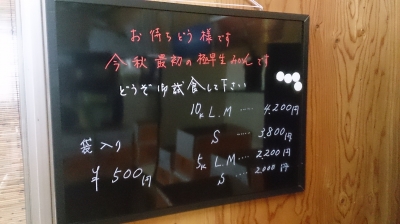 お待ちどう様です
今秋最初の極早生みかんです
どうぞ御試食して下さい
10K L.M ····· 4.200円
S ····· 3.800円
袋入り
5K L.M ···· 2.200円
¥500円
S ···· 2.000円